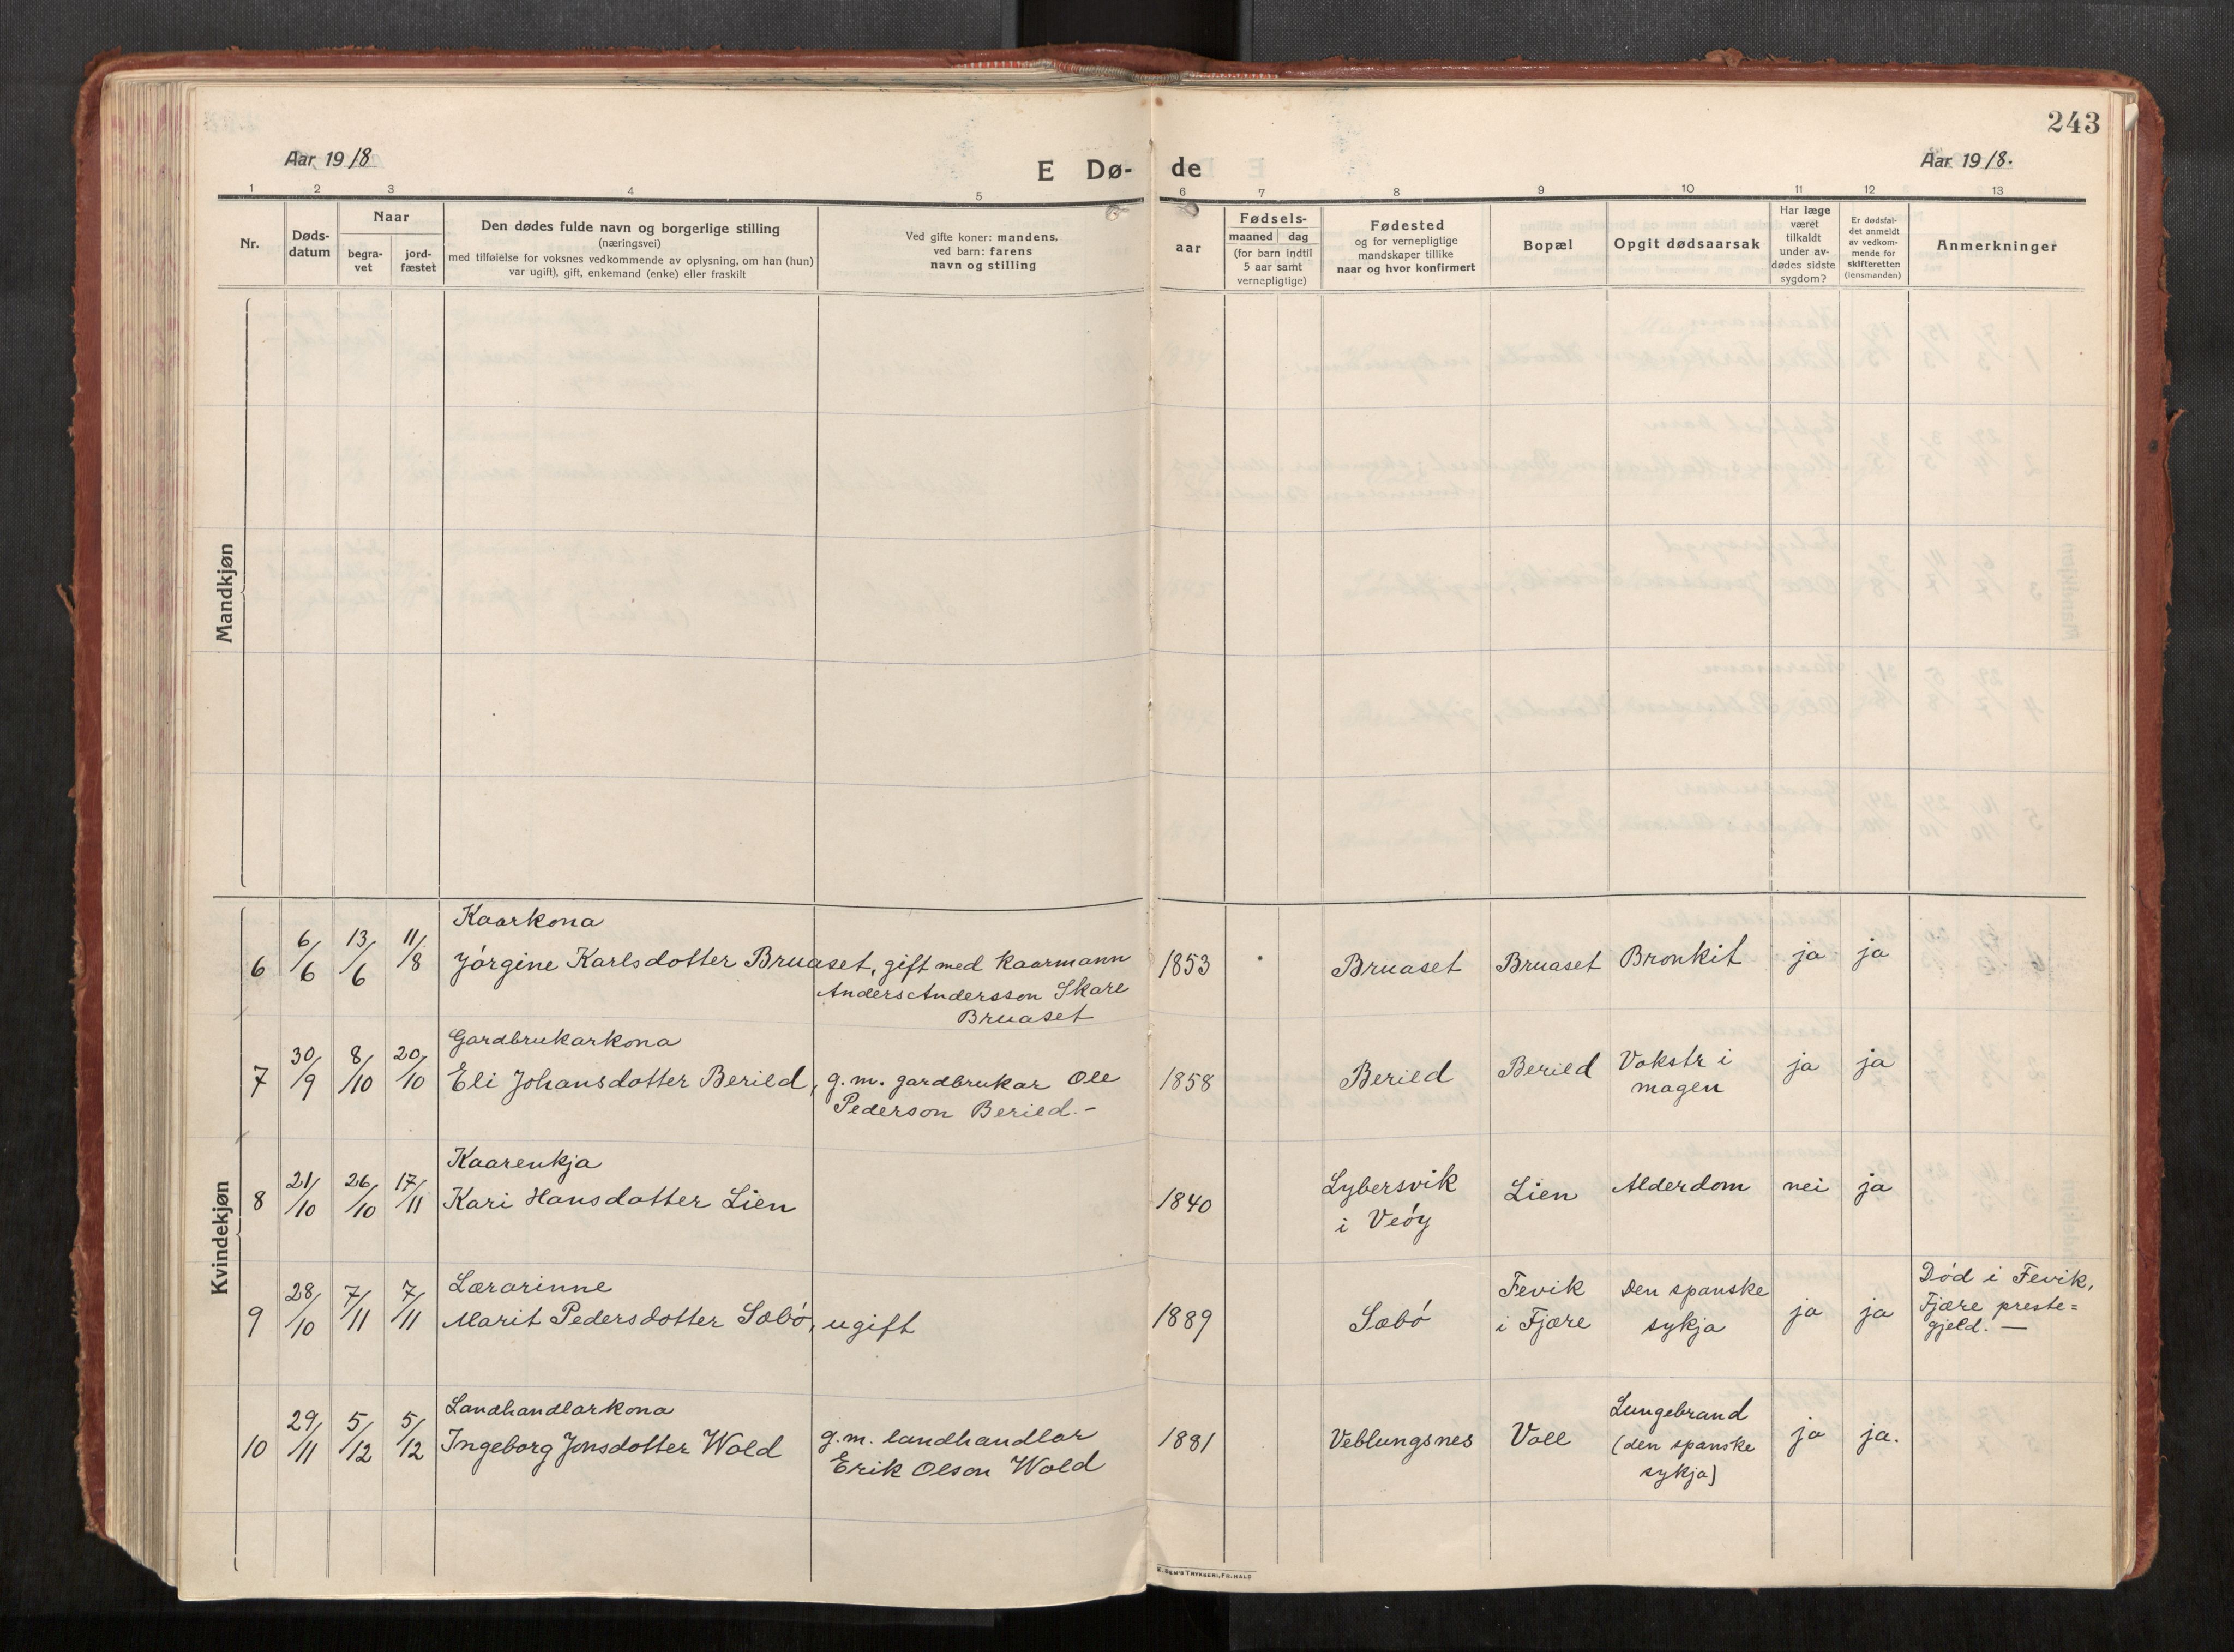 243
Aar 1918
E Dø-
de
Aar 1918.
1 2 3 4 5 6 7 8 9 10 11 12 13
Nr.
Døds-
datum
Naar
begra-
vet
jord-
fæstet
Den dødes fulde navn og borgerlige stilling
(næringsvei)
med tilføielse for voksnes vedkommende av oplysning, om han (hun)
var ugift), gift, enkemand (enke) eller fraskilt
Ved gifte koner: mandens,
ved barn: farens
navn og stilling
aar
Fødsels-
maaned dag
(for barn indtil
5 aar samt
vernepligtige)
Fødested
og for vernepligtige
mandskaper tillike
naar og hvor konfirmert
Bopæl
Opgit dødsaarsak
Har læge
været
tilkaldt
under av-
dødes sidste
sygdom?
Er dødsfal-
det anmeldt
av vedkom-
mende for
skifteretten
(lensmanden)
Anmerkninger
Mandkjøn
Kvindekjøn
Kaarkona
6 6/6 13/6 11/8 Jørgine Karlsdotter Bruaset, gift med kaarmann 1853 Bruaset Bruaset Bronkit ja ja
Anders Andersson Skare
Bruaset
Gardbrukarkona
7 30/9 8/10 20/10 Eli Johansdotter Berild, g.m. gardbrukar Ole 1858 Berild Berild Vokstr i ja ja
Pederson Berild.- magen
Kaarenkja
8 21/10 26/10 17/11 Kari Hansdotter Lien 1840 Lybersvik Lien Alderdom nei ja
i Veøy
Lærarinne
9 28/10 7/11 7/11 Marit Pedersdotter Sæbø, ugift 1889 Sæbø Fevik Den spanske ja ja Død i Fevik,
i Fjære sykja Fjære preste=
gjeld. —
Landhandlarkona
10 29/11 5/12 5/12 Ingeborg Jonsdotter Wold g.m. landhandlar 1881 Veblungsnes Voll Lungebrand ja ja.
Erik Olson Wold (den spanske
sykja)
E. SEM'S TRYKKERI, FR.HALD